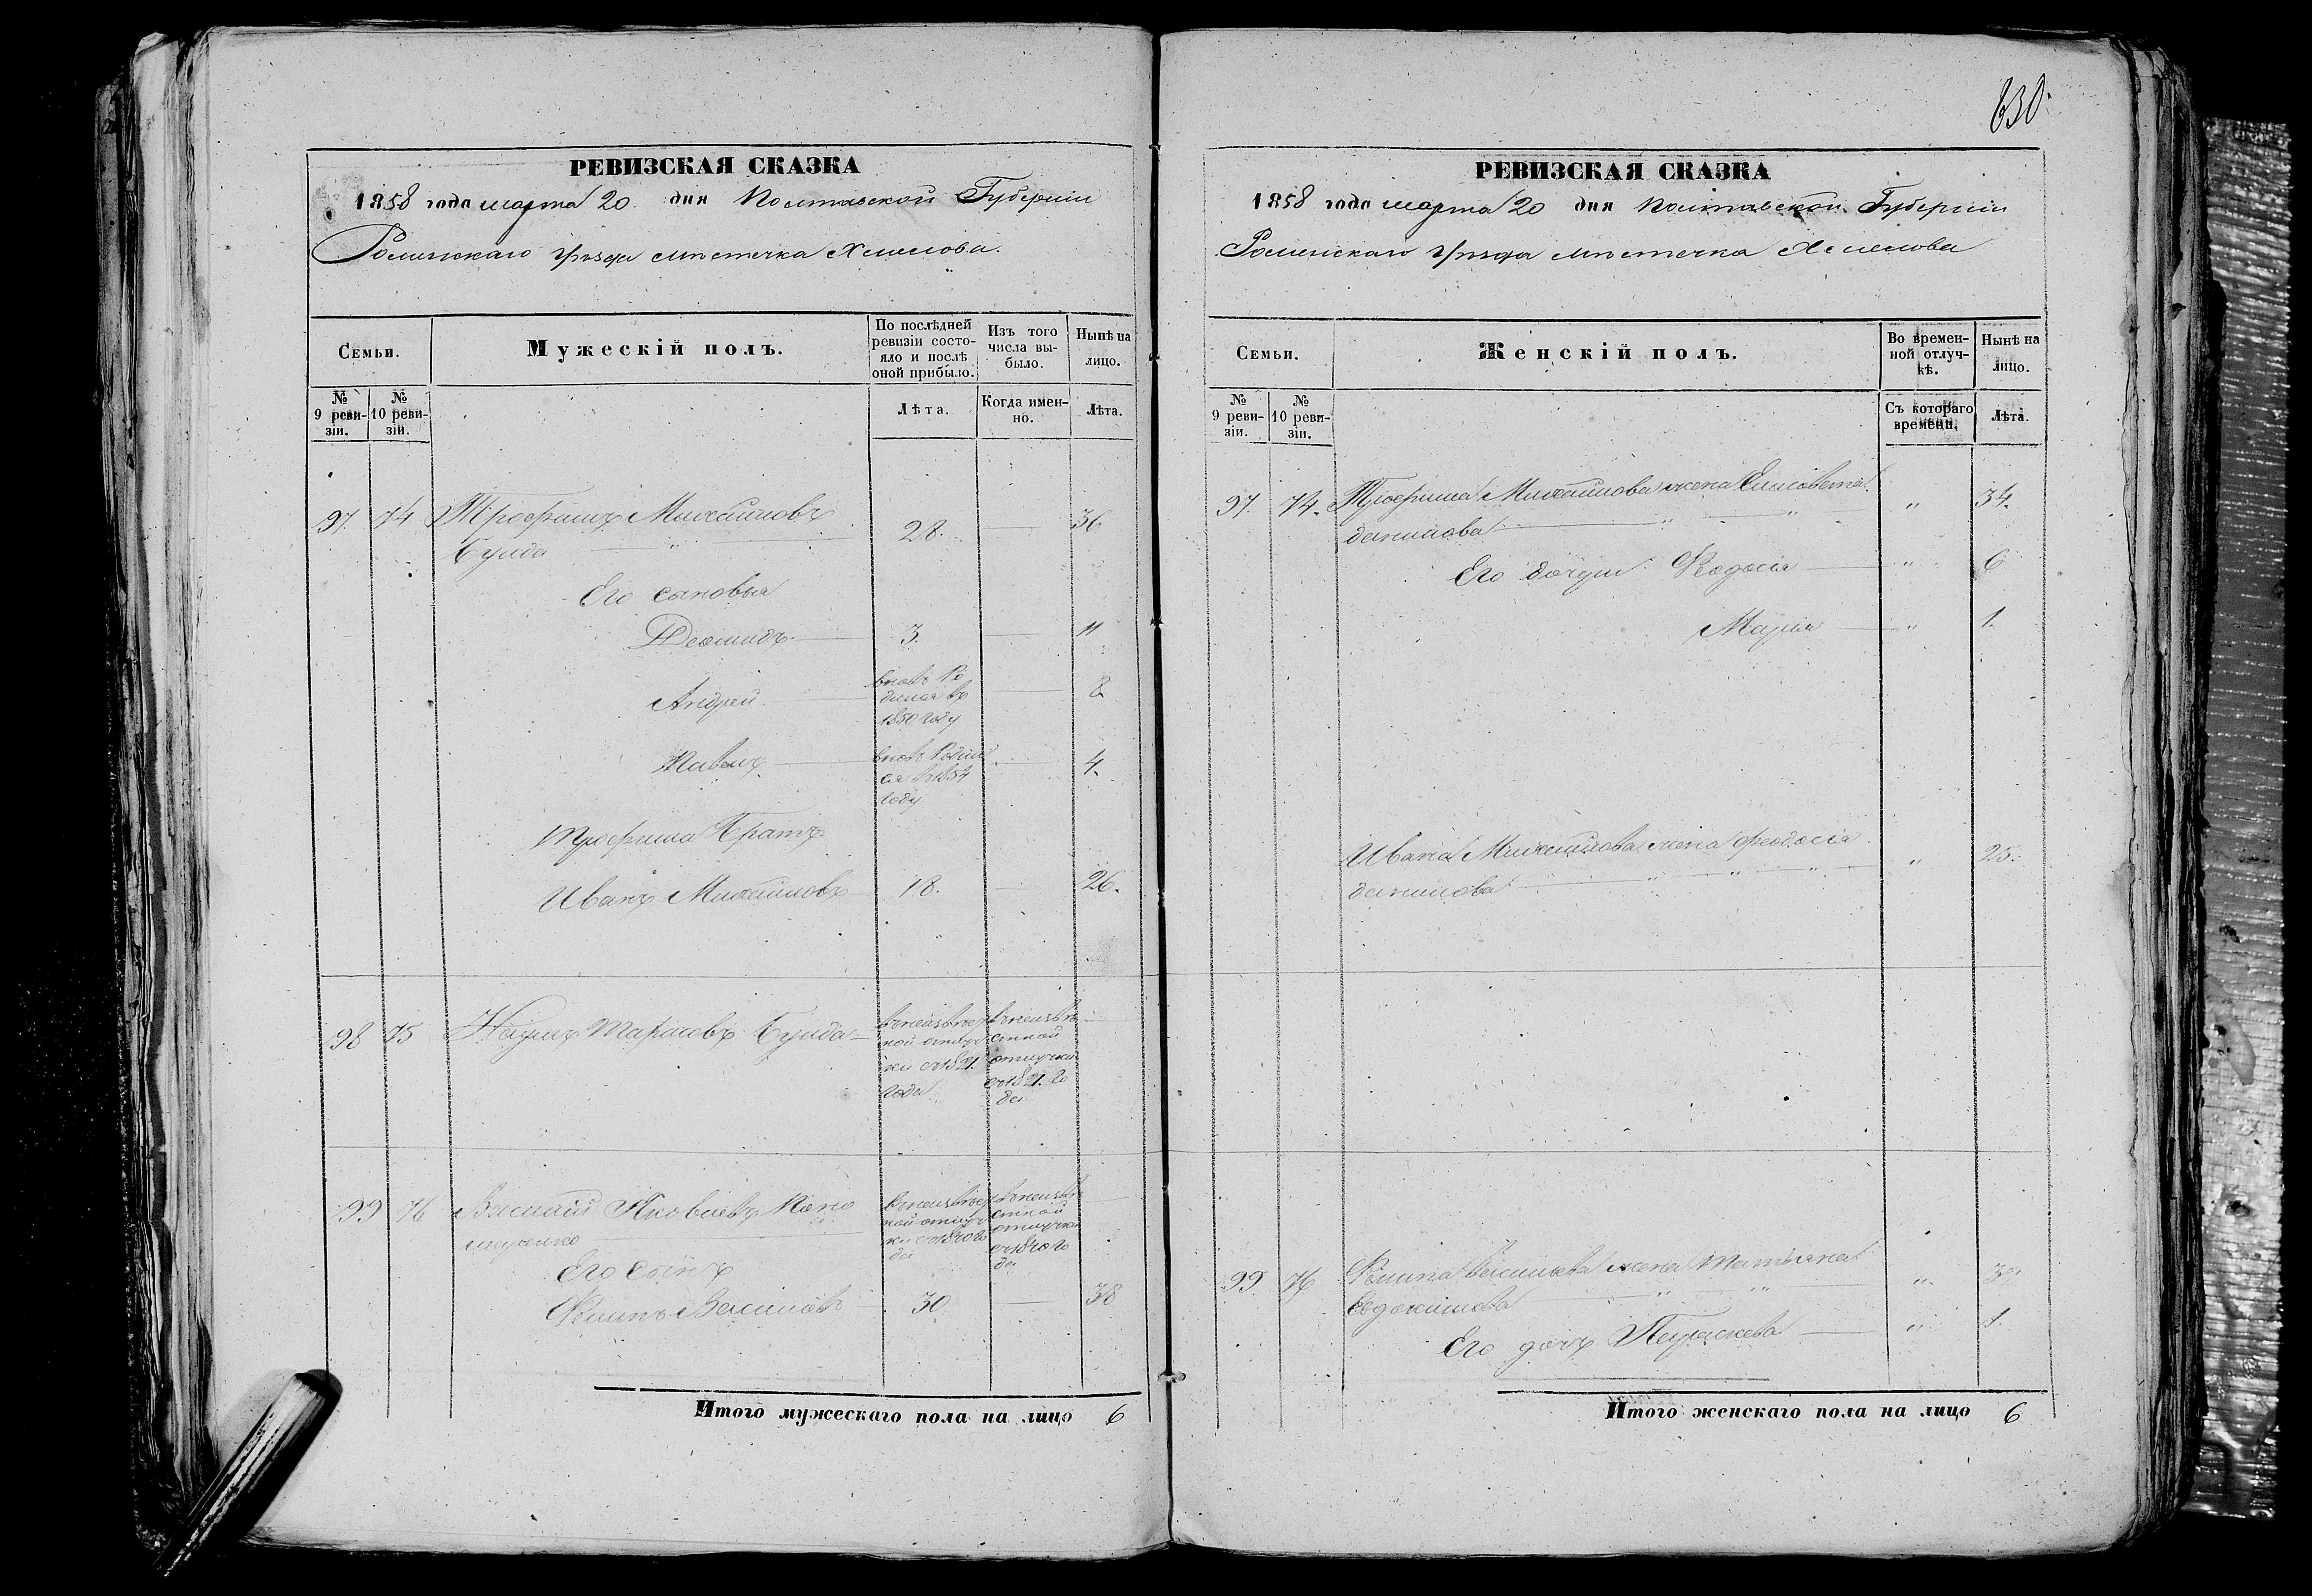 630.
РЕВИЗСКАЯ СКАЗКА
1858 года марта 20 дня Полтавской Губернiи
Роменскаго уѣзда мѣстечка Хмелова.
Семьи.
Мужескiй полъ.
По послѣдней ревизiи состо-
яло и послѣ
оной прибыло.
Изъ того
числа вы-
было.
Нынѣ на
лицо.
№
9 реви-
зiи.
№
10 реви-
зiи.
Лѣта.
Когда имен-
но.
Лѣта.
97. 74 Трофимъ Михайловъ
Бунда 28. 36
Его сыновья
Деомидъ 3. 11
Андрей вновь Ро
дился въ
1850 году 8
Павелъ вновь Родил
ся въ 1854
году 4.
Трофима Братъ
Иванъ Михайловъ 18. 26.
98 75 Наумъ Тарасовъ Бунда
въ неизвѣст
ной отлуч
ки съ 1821
года
въ неизвѣ
стной
отлучки
съ 1821. го
да
99 76 Василiй Яковлевъ
въ неизвѣст
ной отлуч
ки съ 1840 го
да
въ неизвѣ
стной
отлучки
съ 1840 го
да
Его сынъ
Филипъ Васильевъ 30 38
Итого мужескаго пола на лицо 6
РЕВИЗСКАЯ СКАЗКА
1858 года марта 20 дня Полтавской Губернiи
Роменскаго уѣзда мѣстечка Хмелова
Семьи.
Женскiй полъ.
Во времен-
ной отлуч-
кѣ.
Нынѣ на
лицо.
№
9 реви-
зiи.
№
10 реви-
зiи.
Съ котораго
времени.
Лѣта.
97. 74. Трофима Михайлова жена Елисавета
данилова " 34.
Его дочери Феодосiя " 6
Марiя " 1.
Ивана Михайлова жена феодосiя
данилова " 25.
99 76 Филипа Васильева жена Татьяна
Евдокимова "
Его дочь Параскева " 1.
Итого женскаго пола на лицо 6